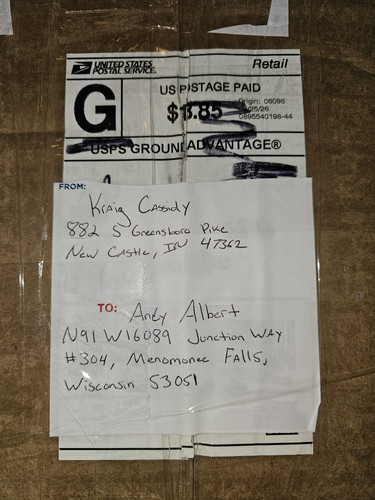 UNITED STATES POSTAL SERVICE®
Retail
G
US POSTAGE PAID
Origin: 06098
0895540198-44
USPS GROUND ADVANTAGE®
FROM:
Kraig Cassidy
882 S Greensboro Pike
New Castle, IN 47362
TO: Andy Albert
N91 W16089 Junction Way
#304, Menomonee Falls,
Wisconsin 53051